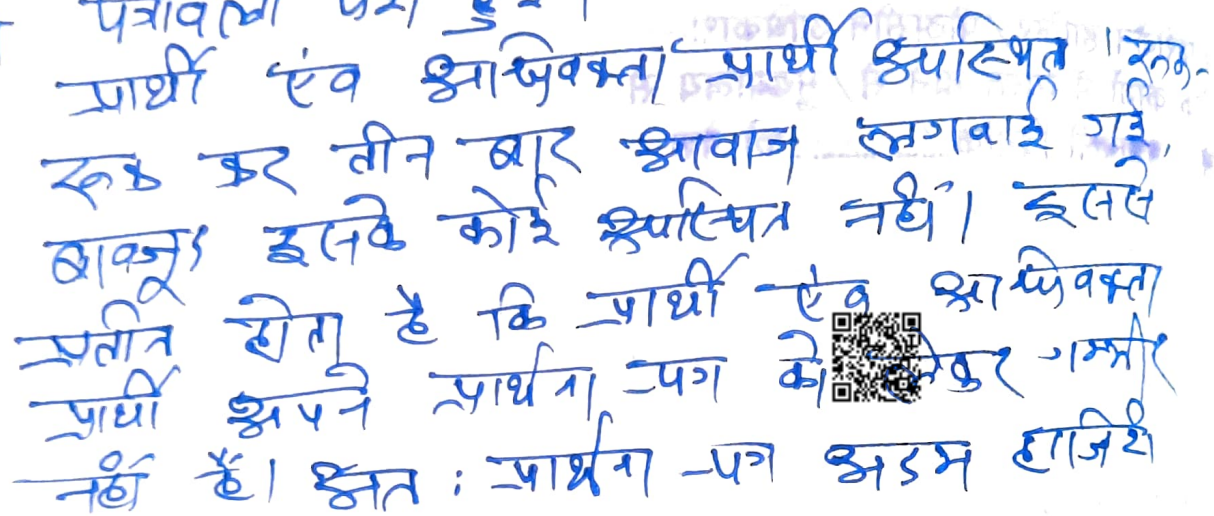 पत्रावली पेश हुई।
प्रार्थी एंव अधिवक्ता प्रार्थी अपस्थित। रूक-
रूक कर तीन बार आवाज लगवाई गई,
बावजूद इसके कोई उपस्थित नहीं। इससे
प्रतीत होता है कि प्रार्थी एंव अधिवक्ता
प्रार्थी अपने प्रार्थना पत्र को लेकर गम्भीर
नहीं हैं। अत: प्रार्थना पत्र अदम हाजिरी